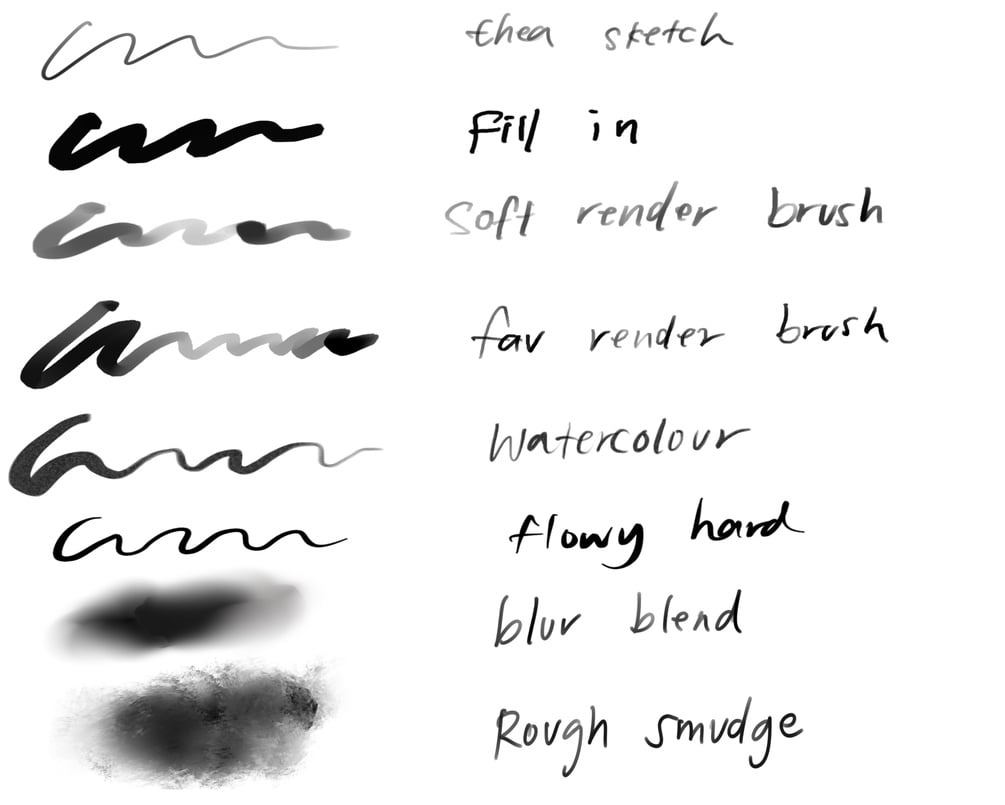 thea sketch
Fill in
Soft render brush
fav render brush
Watercolour
flowy hard
blur blend
Rough smudge